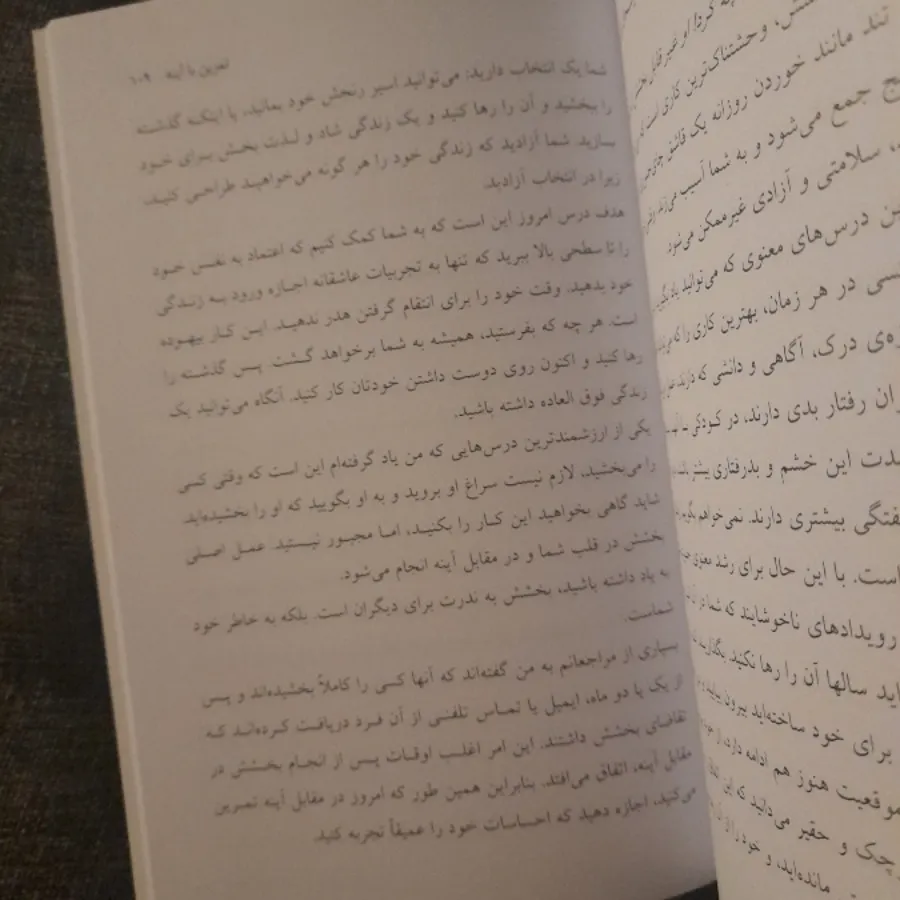 تمرین با آینه ۱۰۹
شما یک انتخاب دارید: می‌توانید اسیر رنجش خود بمانید، یا اینکه گذشته
را ببخشید و آن را رها کنید و یک زندگی شاد و لذت بخش برای خود
بسازید. شما آزادید که زندگی خود را هر گونه می‌خواهید طراحی کنید،
زیرا در انتخاب آزادید.
هدف درس امروز این است که به شما کمک کنیم که اعتماد به نفس خود
را تا سطحی بالا ببرید که تنها به تجربیات عاشقانه اجازه ورود به زندگی
خود بدهید. وقت خود را برای انتقام گرفتن هدر ندهید. این کار بیهوده
است. هر چه که بفرستید، همیشه به شما برخواهد گشت. پس گذشته را
رها کنید و اکنون روی دوست داشتن خودتان کار کنید. آنگاه می‌توانید یک
زندگی فوق العاده داشته باشید.
یکی از ارزشمندترین درس‌هایی که من یاد گرفته‌ام این است که وقتی کسی
را می‌بخشید، لازم نیست سراغ او بروید و به او بگویید که او را بخشیده‌اید.
شاید گاهی بخواهید این کار را بکنید، اما مجبور نیستید. عمل اصلی
بخشش در قلب شما و در مقابل آینه انجام می‌شود.
به یاد داشته باشید، بخشش به ندرت برای دیگران است. بلکه به خاطر خود
شماست.
بسیاری از مراجعانم به من گفته‌اند که آنها کسی را کاملاً بخشیده‌اند و پس
از یک یا دو ماه، ایمیل یا تماس تلفنی از آن فرد دریافت کرده‌اند که
تقاضای بخشش داشتند. این امر اغلب اوقات پس از انجام بخشش در
مقابل آینه، اتفاق می‌افتد. بنابراین همین طور که امروز در مقابل آینه تمرین
می‌کنید، اجازه دهید که احساسات خود را عمیقاً تجربه کنید.
وحشتناک‌ترین کاری است
تند مانند خوردن روزانه یک قاشق چای
جمع می‌شود و به شما آسیب می‌زند
سلامتی و آزادی غیرممکن می‌شود.
درس‌های معنوی که می‌توانید یاد
در هر زمان، بهترین کاری را که
درک، آگاهی و دانشی که دارند
رفتار بدی دارند، در کودکی
این خشم و بدرفتاری بیشتر
بیشتری دارند. نمی‌خواهم بگویم
است. با این حال برای رشد معنوی
رویدادهای ناخوشایند که شما در
سالها آن را رها نکنید بگذارید
برای خود ساخته‌اید بیرون بیایید و
هنوز هم ادامه دارد، از خود
و حقیر می‌دانید که این
مانده‌اید، و خود را از آن